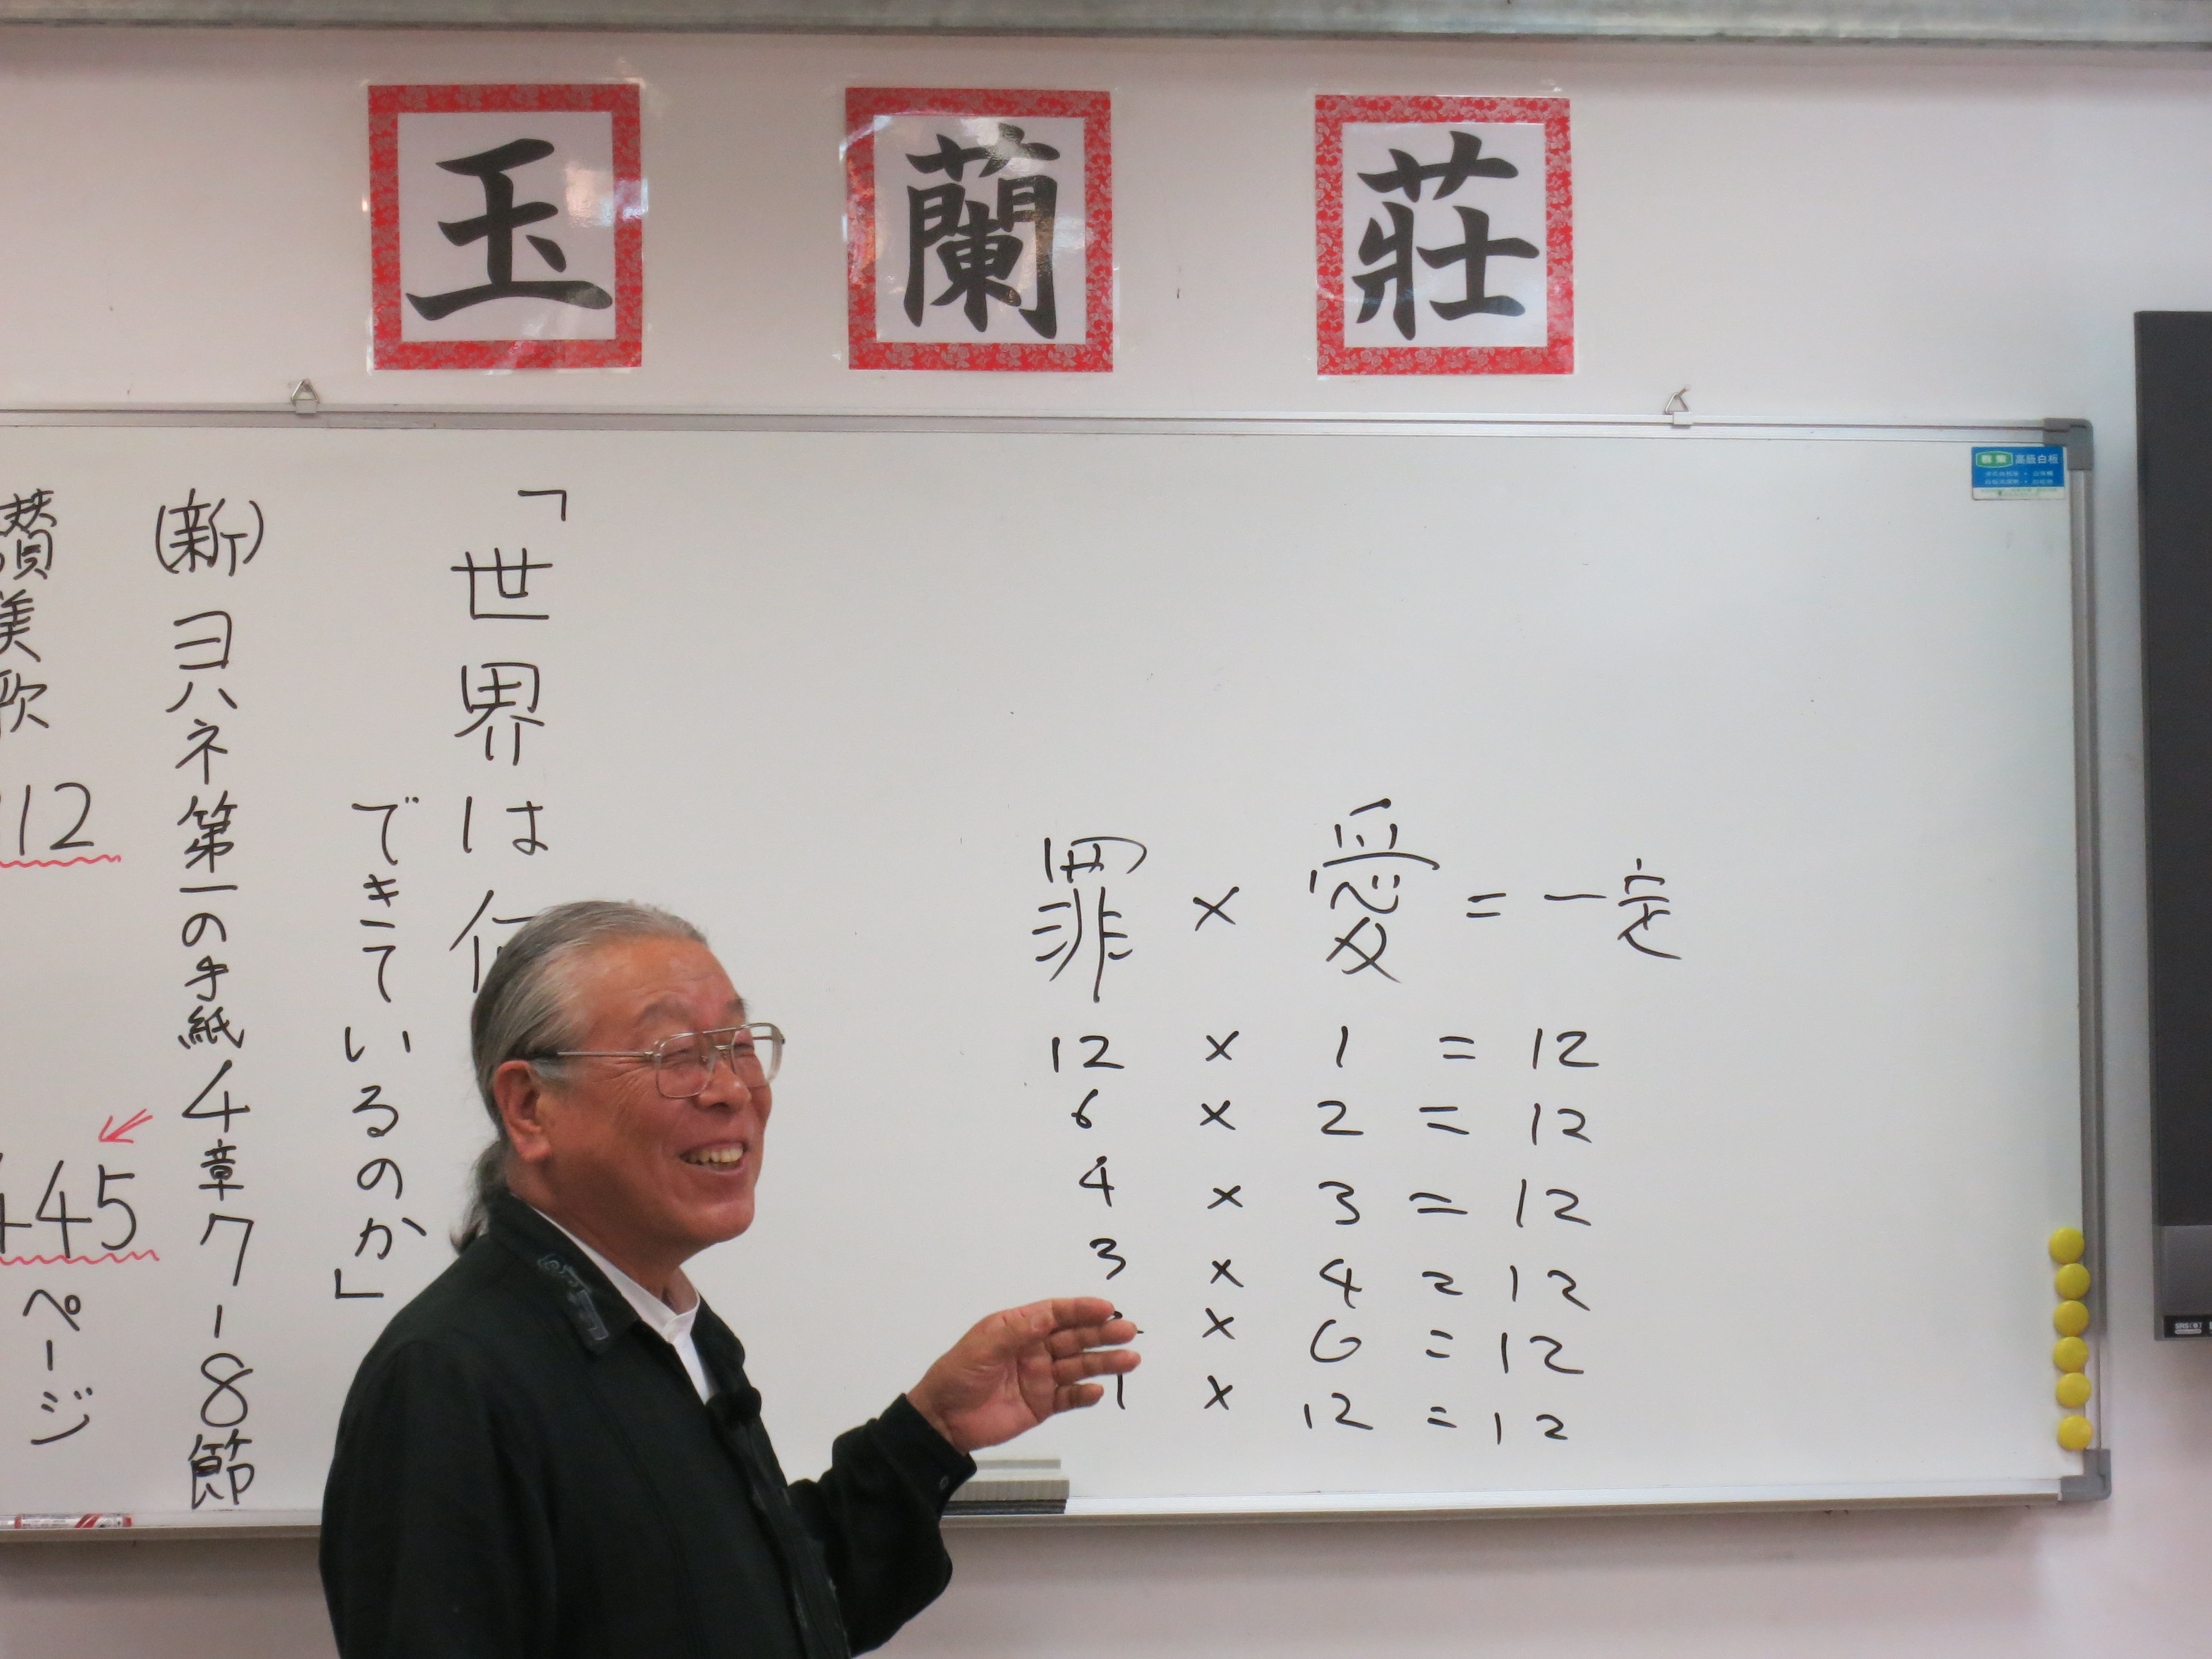 玉蘭莊
高級白板
「世界は何
できているのか」
(新)ヨハネ第一の手紙4章7-8節
讃美歌 312
445ページ
罪 × 愛 = 一定
12 × 1 = 12
6 × 2 = 12
4 × 3 = 12
3 × 4 = 12
2 × 6 = 12
1 × 12 = 12